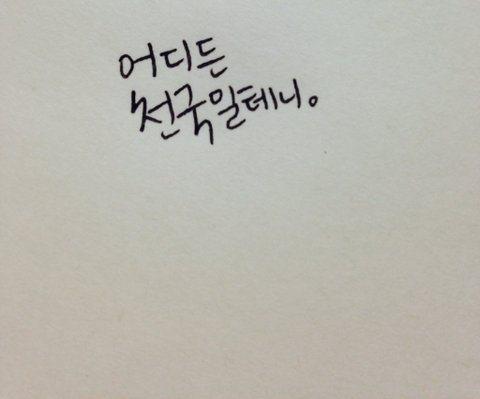 어디든
천국일테니。